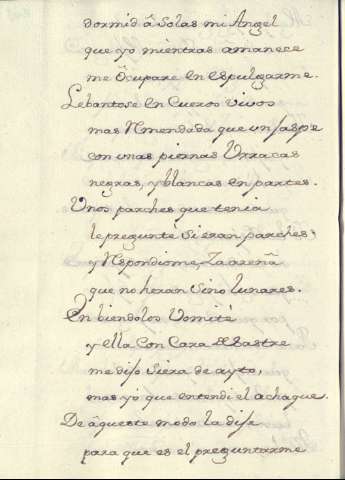 dormid â Solas mi Angel
que yo mientras amanece
me Ôcupare en espulgarme.
Lebantose En Cueros vivos
mas Rmendada que un Jaspe
con unas piernas Urracas
negras, y blancas en partes.
Unos parches que tenia
le pregunté Si eran parches
y Rspondiome, la areña
que no heran Sino lunares.
En biendolos Vomité
y Ella Con Cara de Sastre
me dijo Si era de ayto,
mas yo que entendi el achaque.
De âqueste modo la dije
para que es el preguntarme